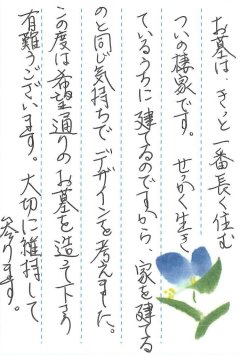 お墓は、きっと一番長く住む
ついの棲家です。せっかく生き
ているうちに建てるのですから、家を建てる
のと同じ気持ちでデザインを考えました。
この度は希望通りのお墓を造って下り
有難うございます。大切に維持して
参ります。